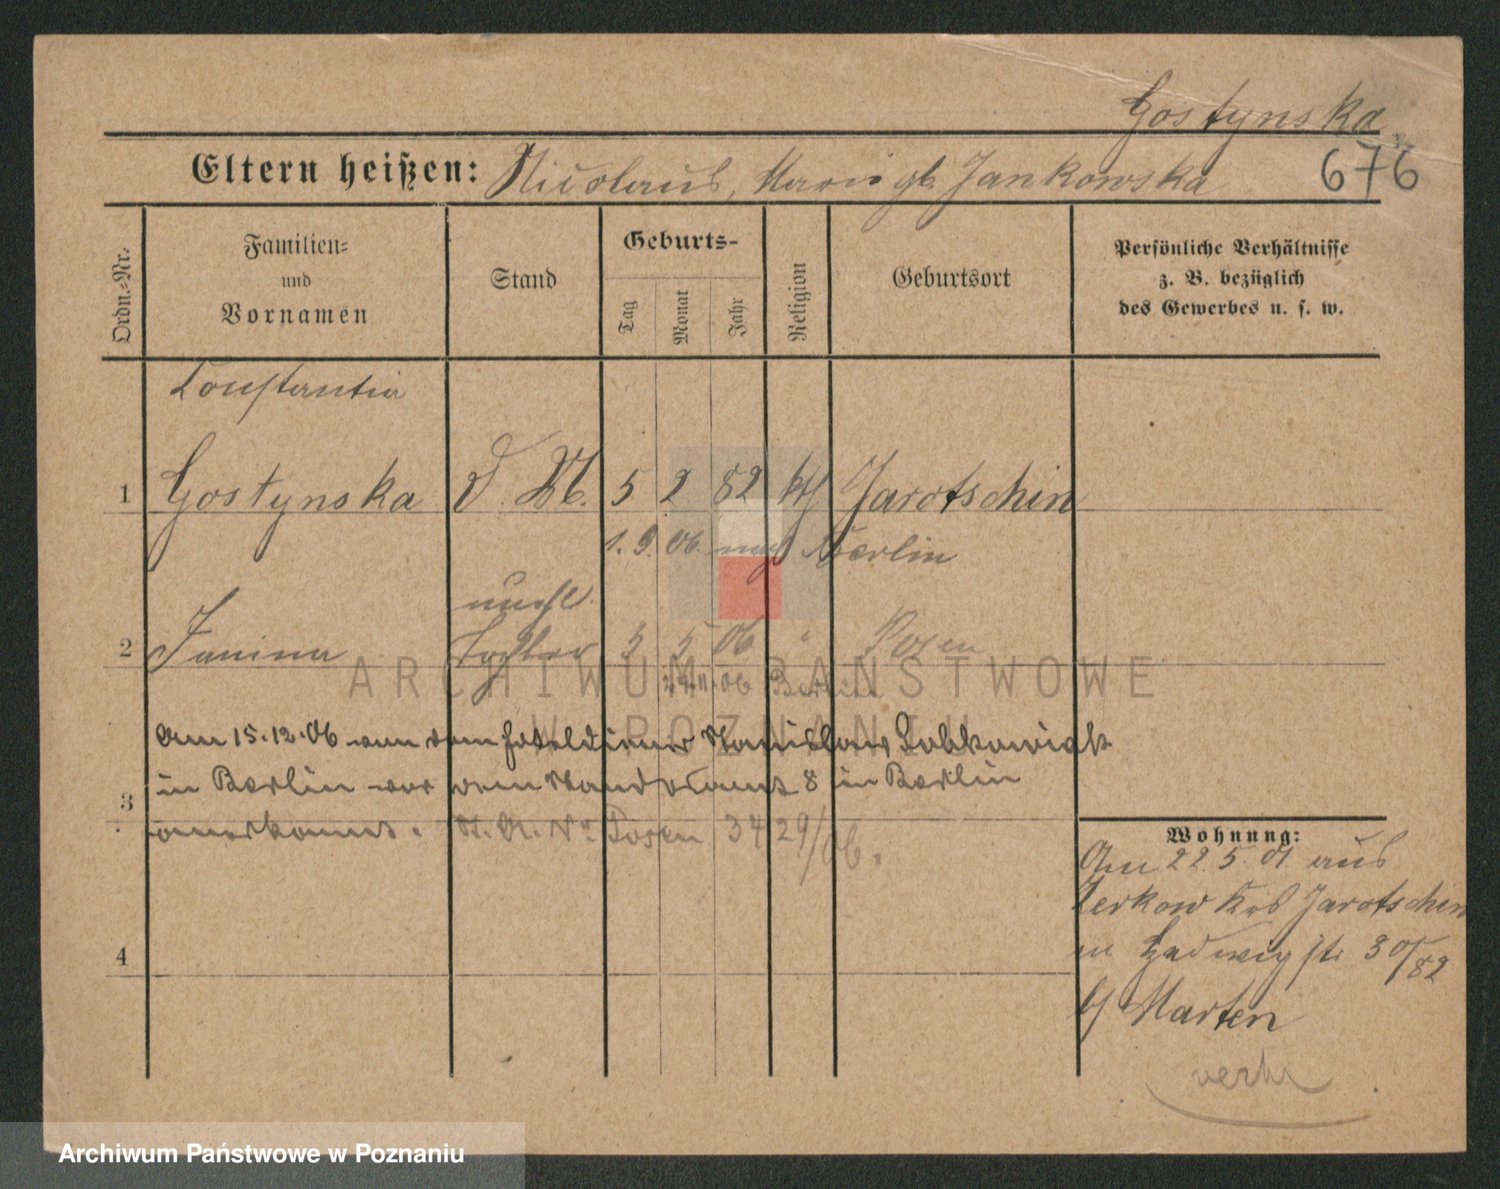 Gostynska
676
Eltern heißen: Nicolaus, Maria gb. Jankowska
Ordn.-Nr.
Familien-
und
Vornamen
Stand
Geburts-
Tag
Monat
Jahr
Religion
Geburtsort
Persönliche Verhältnisse
z. B. bezüglich
des Gewerbes u. s. w.
Constantia
1 Gostynska d. M. 5 2 82 kth Jarotschin
1. 9. 06. nach Berlin
unehl.
2 Janina Tochter 3 5 06 " Posen
24.11.06 Berlin
ARCHIWUM PAŃSTWOWE
W POZNANIU
Am 15.12.06 von dem Hoteldiener Stanislaus
in Berlin vor dem Standesamt 8 in Berlin
3
anerkannt. St. A. Nr Posen 34 29/06.
4
Wohnung:
Am 22.5.01. aus
Zerkow Krs Jarotschin
n. str 30/82
b/ Marten
verh
Archiwum Państwowe w Poznaniu